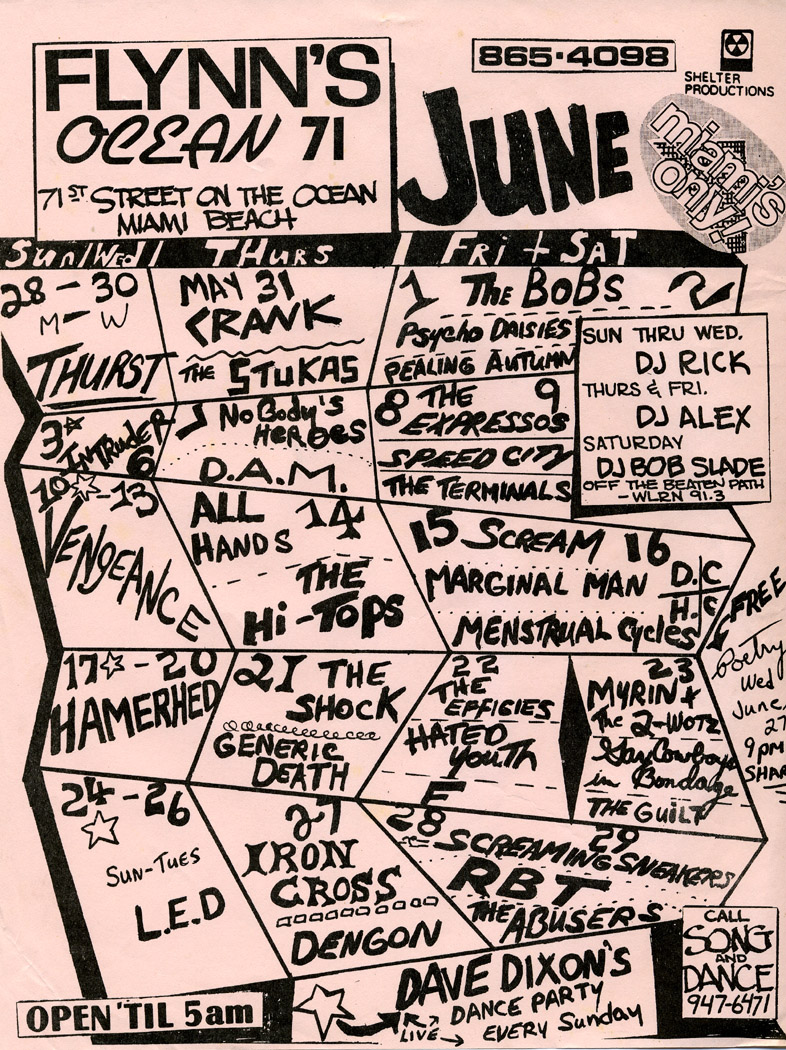 FLYNN'S
OCEAN 71
71ST STREET ON THE OCEAN
MIAMI BEACH
865·4098
SHELTER
PRODUCTIONS
JUNE
miami's
only!
Sun/Wed | THURS | FRi + SAT
28 - 30
M - W
THURST
MAY 31
CRANK
THE STUKAS
1 THE BOBS 2
Psycho DAISIES
PEALING AUTUMN
SUN THRU WED.
DJ RICK
THURS & FRI.
DJ ALEX
SATURDAY
DJ BOB SLADE
OFF THE BEATEN PATH
- WLRN 91.3
3☆
INTRUDER
6
NoBody's
HERoes
D.A.M.
8 THE 9
EXPRESSOS
SPEED CITY
THE TERMINALS
10☆-13
VENGEANCE
ALL 14
HANDS
THE
Hi-TOPS
15 SCREAM 16
MARGINAL MAN D.C
H.C
MENSTRUAL Cycles
FREE
Poetry
Wed
June
27
9 PM
SHAR
17☆-20
HAMERHED
21 THE
SHOCK
GENERIC
DEATH
22
THE
EFFIGIES
HATED
YOUTH
F
23
MYRIN +
The 2-WOTZ
Gay Cowboys
in Bondage
THE GUILT
24-26
☆
SUN-TUES
L.E.D
27
IRON
CROSS
DENGON
28 29
SCREAMING SNEAKERS
RBT
THE ABUSERS
CALL
SONG
AND
DANCE
947-6471
DAVE DIXON'S
DANCE PARTY
LIVE → EVERY Sunday
OPEN 'TIL 5am